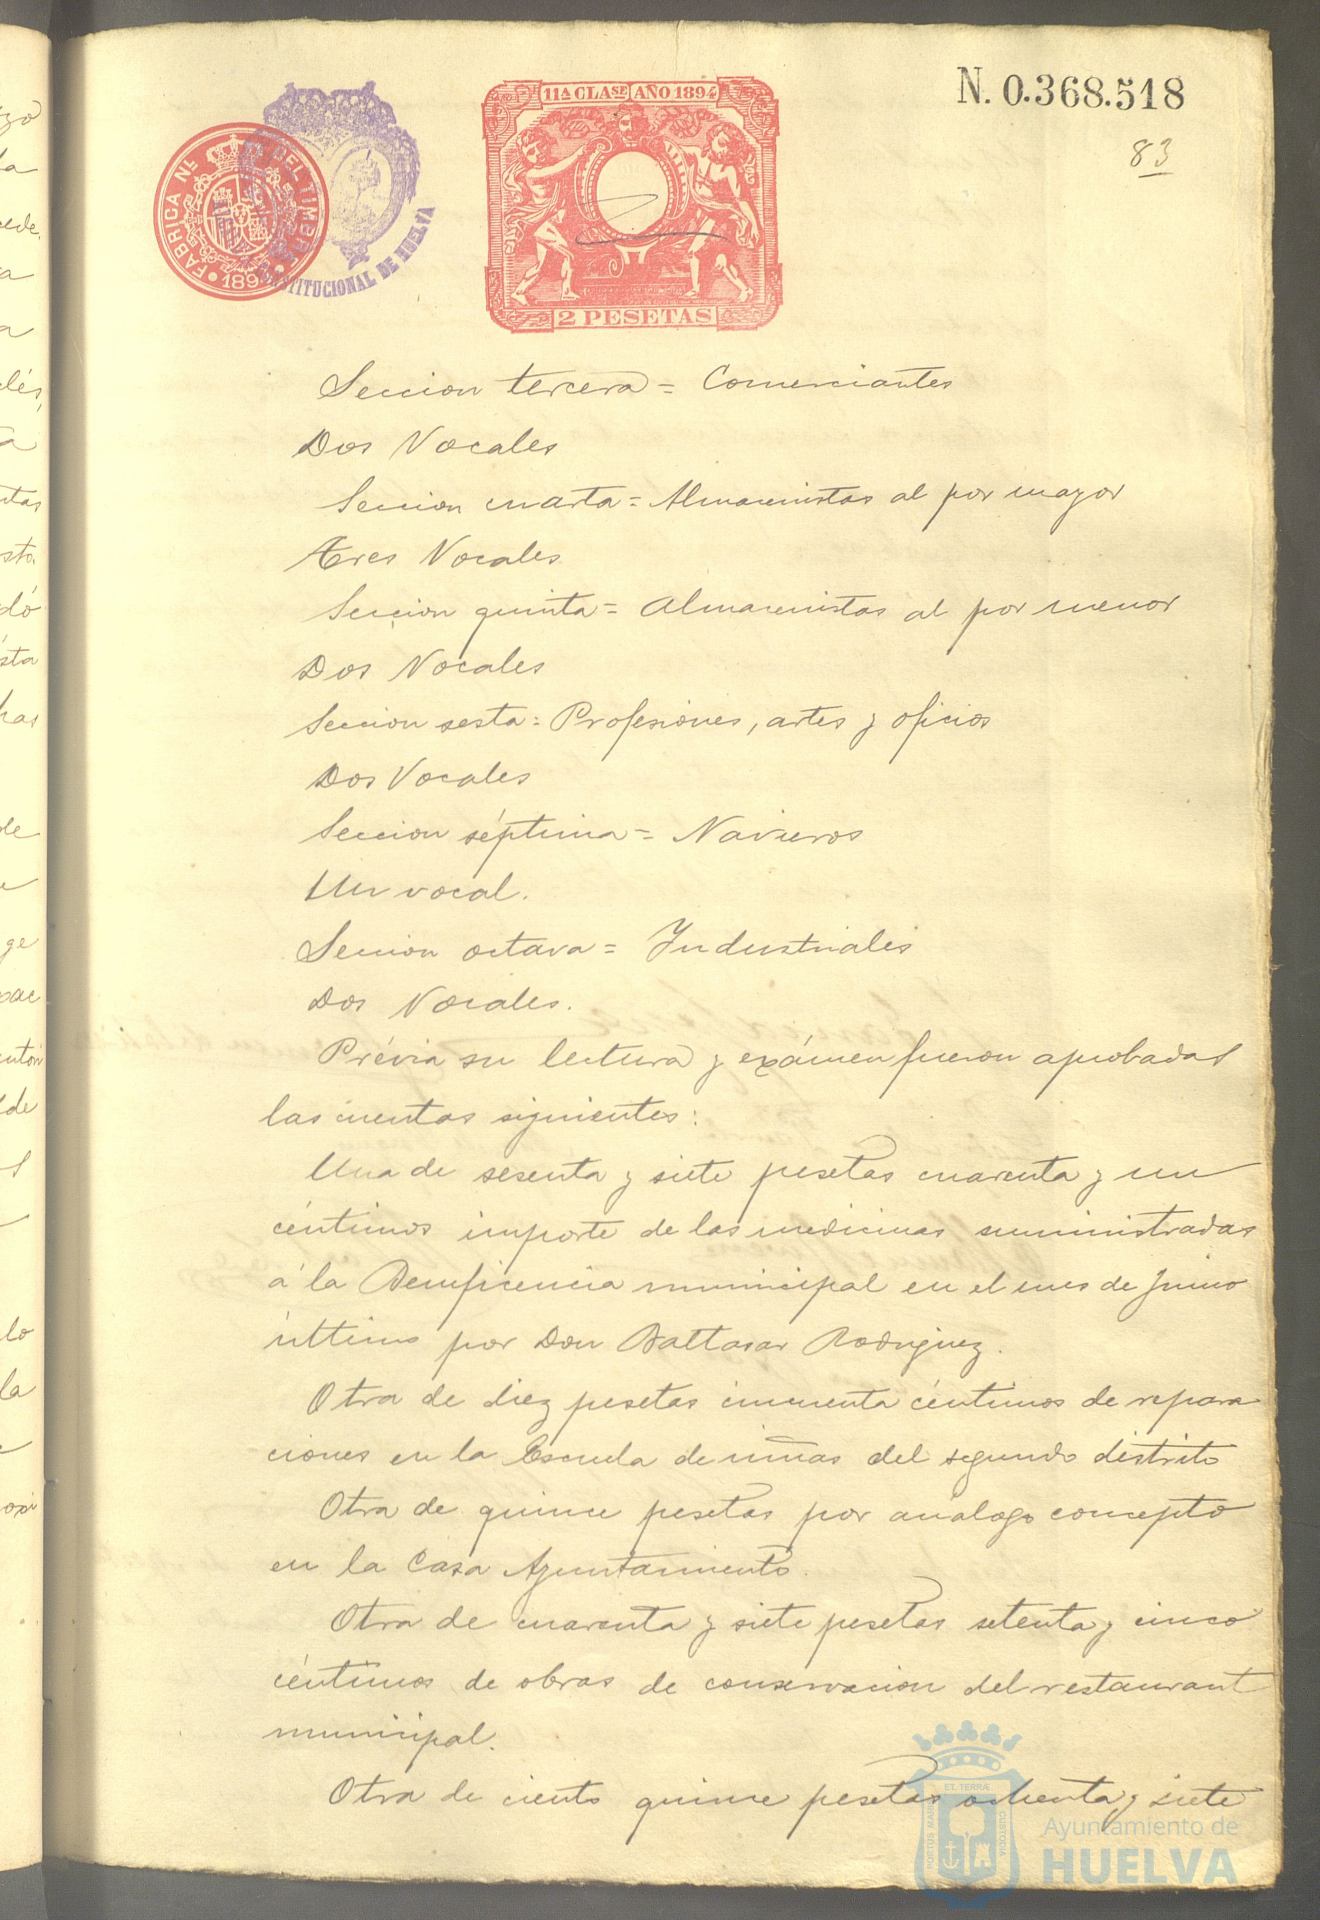 N. 0.368.518
83
11ᴬ CLASE AÑO 1894
FABRICA NL DEL TIMBRE
189
STITUCIONAL DE HUELVA
2 PESETAS
Seccion tercera = Comerciantes
Dos Vocales
Seccion cuarta = Almacenistas al por mayor
Tres Vocales
Seccion quinta = Almacenistas al por menor
Dos Vocales
Seccion sesta = Profesiones, artes y oficios
Dos Vocales
Seccion séptima = Navieros
Un vocal.
Seccion octava = Industriales
Dos Vocales.
Prévia su lectura y exámen fueron aprobadas
las cuentas siguientes:
Una de sesenta y siete pesetas cuarenta y un
céntimos importe de las medicinas suministradas
á la Beneficencia municipal en el mes de Junio
último por Don Baltasar Rodriguez.
Otra de diez pesetas cincuenta céntimos de repara
ciones en la Escuela de niñas del segundo distrito
Otra de quince pesetas por análogo concepto
en la Casa Ayuntamiento.
Otra de cuarenta y siete pesetas setenta y cinco
céntimos de obras de conservacion del restaurant
municipal.
Otra de ciento quince pesetas ochenta y siete
PORTUS MARIS ET TERRÆ CUSTODIA
Ayuntamiento de
HUELVA